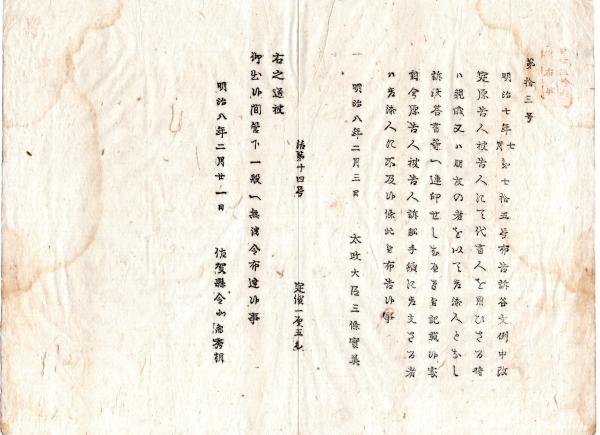 第拾三号
明治七年七月第七拾五号布告訴答文例中改
定原告人被告人にて代書人を用ひさる時
ハ親戚又ハ朋友の者を以て差添人となし
訴状答書等へ連印せしむへき旨記載候處
自今原告人被告人訴訟手續に差支さる者
ハ差添人に不及候條此旨布告候事
一 明治八年二月三日 太政大臣三條實美
第十四号 定價一厘五毛
右之通被
御出候間管下一般へ無洩令布達候事
明治八年二月廿一日 佐賀縣令北島秀朝